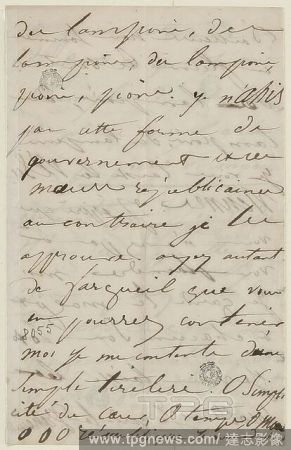 des lampions, des
lampions des lampions
je n'ahis
par cette forme de
gouvernement et ces
mœurs républicaines
au contraire je les
approuve ayez autant
de que vous
en pourrez contenir
moi je me contente d'une
simple tirelire. O Simpli
cité de cœur, O temps O
O O O
48055
TPG
www.tpgnews.com 達志影像